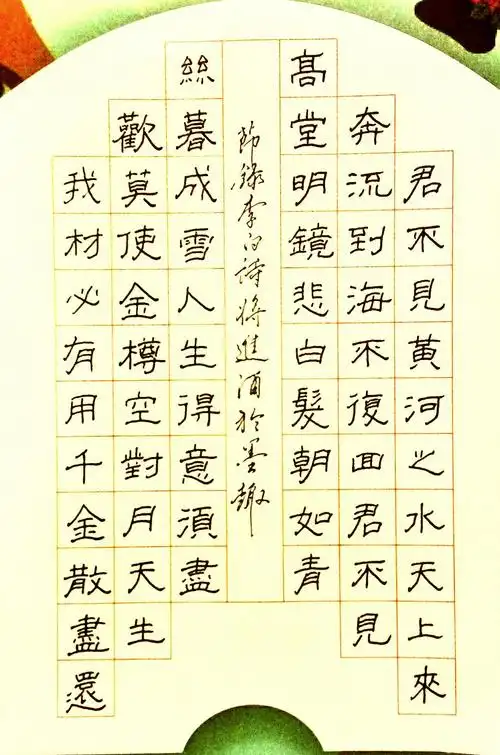 君不見黃河之水天上來
奔流到海不復囬君不見
髙堂明鏡悲白髮朝如青
節錄李白詩將進酒於墨趣
絲暮成雪人生得意須盡
歡莫使金樽空對月天生
我材必有用千金散盡還